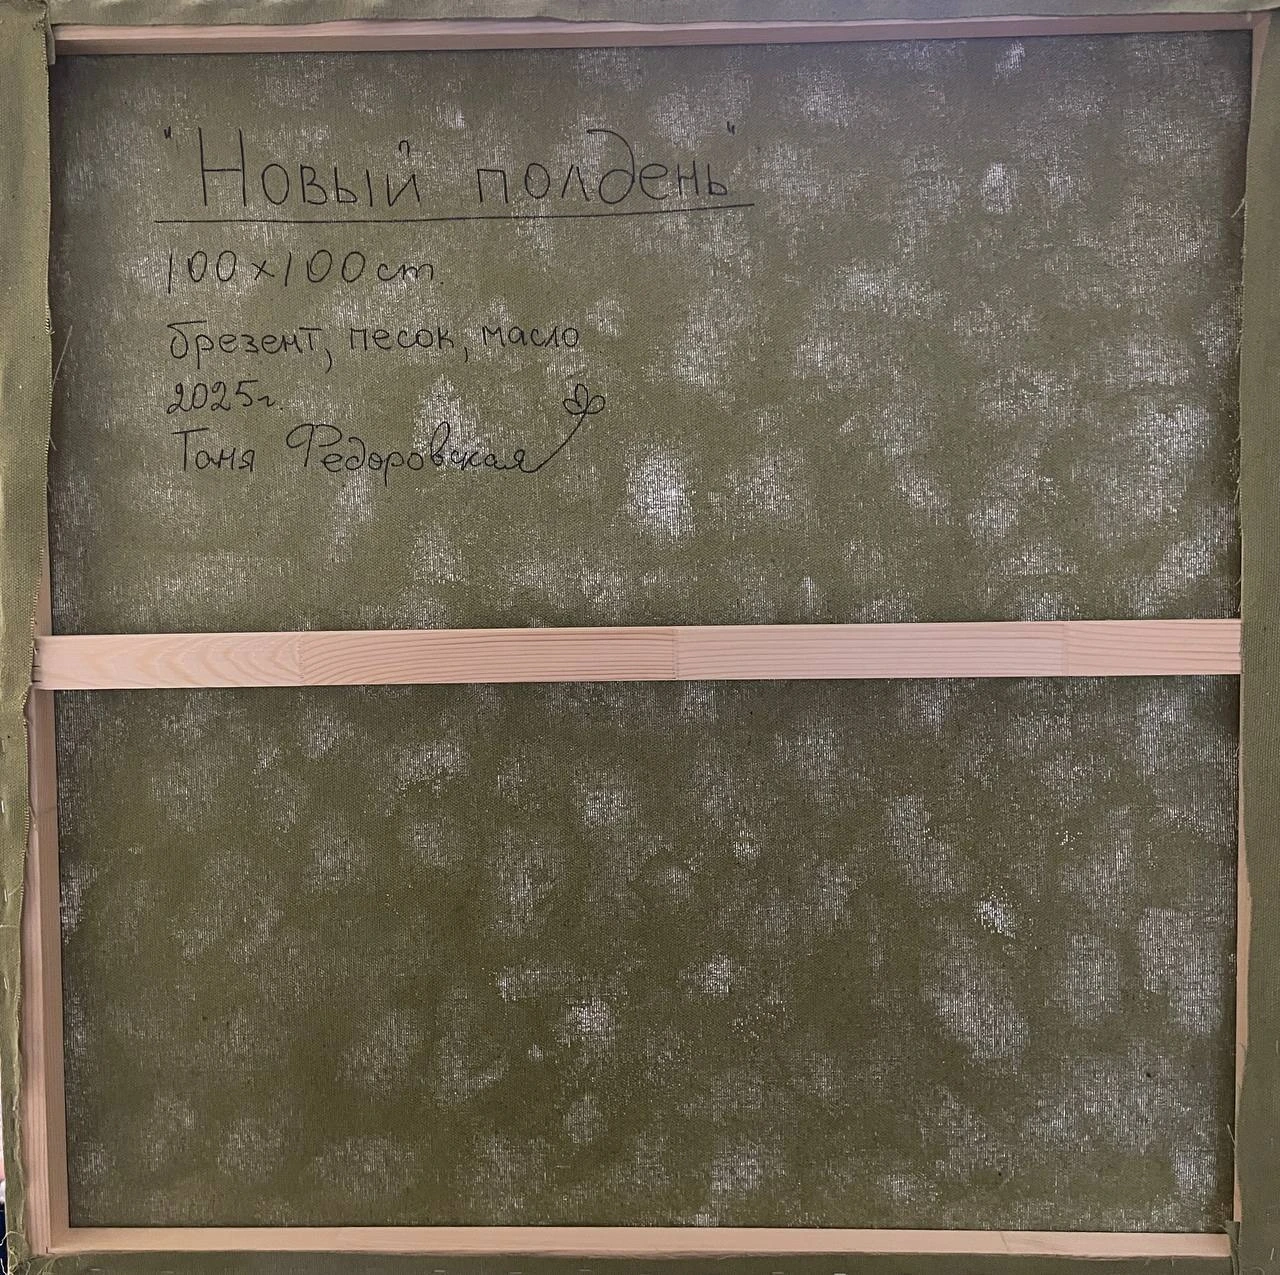 "Новый полдень"
100×100 cm.
брезент, песок, масло
2025г.
Таня Федоровская